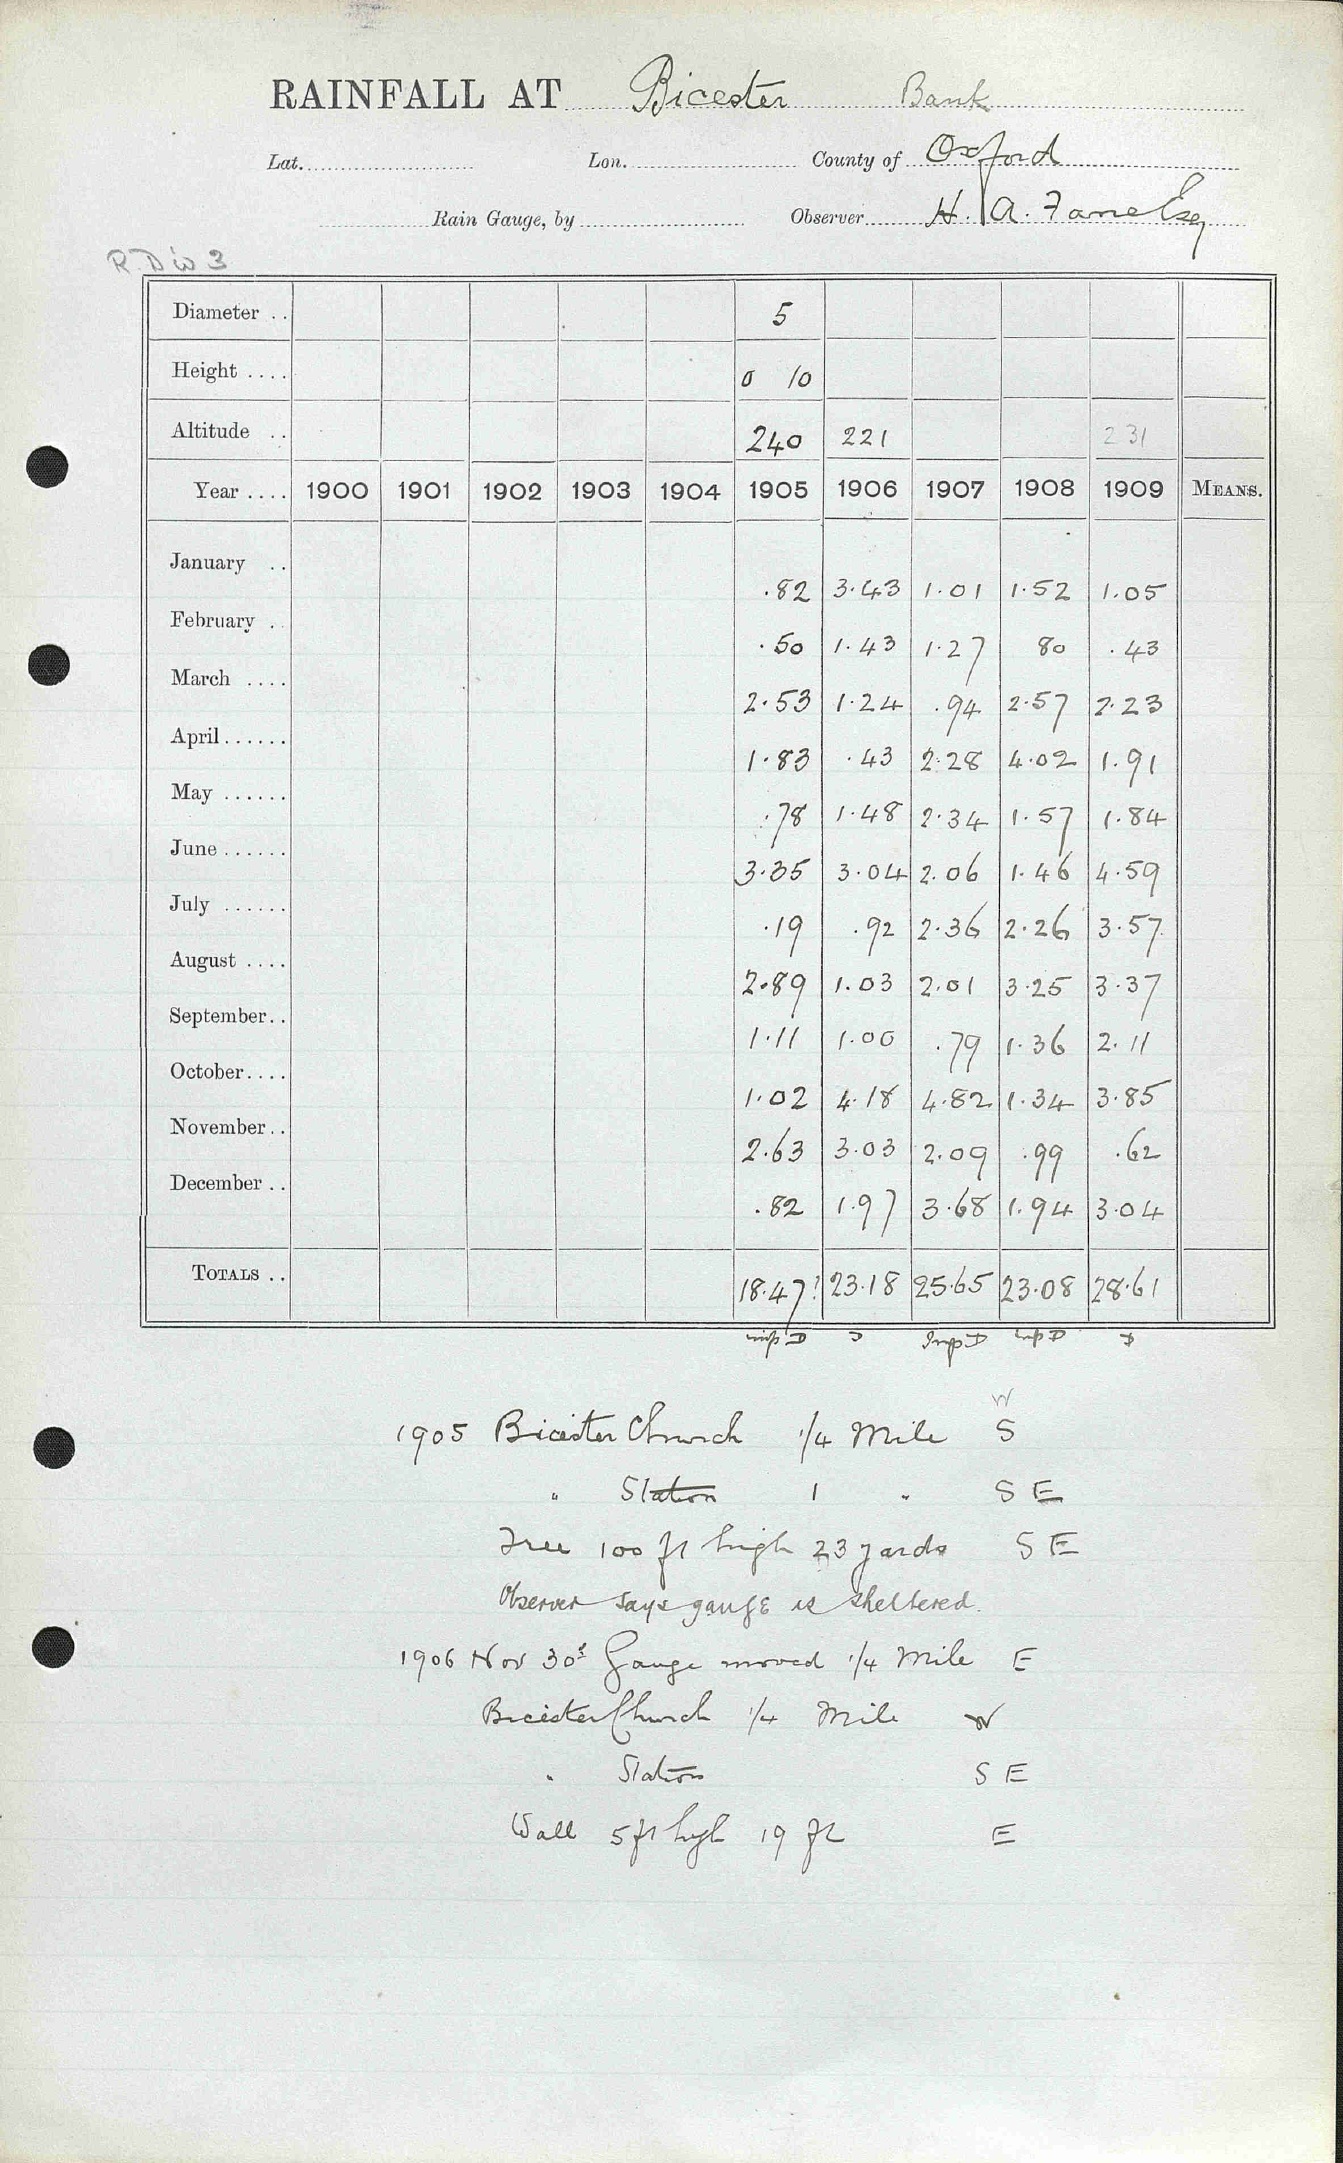 RAINFALL AT Bicester Bank
Lat. Lon. County of Oxford
Rain Gauge, by Observer H. A. Fane Esq
R. Div 3
Diameter .. 5
Height .... 0 10
Altitude .. 240 221 231
Year .... 1900 1901 1902 1903 1904 1905 1906 1907 1908 1909 MEANS.
January .. .82 3.43 1.01 1.52 1.05
February . .50 1.43 1.27 80 .43
March .... 2.53 1.24 .94 2.57 2.23
April...... 1.83 .43 2.28 4.02 1.91
May ...... .78 1.48 2.34 1.57 1.84
June ...... 3.35 3.04 2.06 1.46 4.59
July ...... .19 .92 2.36 2.26 3.57
August .... 2.89 1.03 2.01 3.25 3.37
September.. 1.11 1.00 .79 1.36 2.11
October.... 1.02 4.18 4.82 1.34 3.85
November.. 2.63 3.03 2.09 .99 .62
December .. .82 1.97 3.68 1.94 3.04
TOTALS .. 18.47? 23.18 25.65 23.08 28.61
W
1905 Bicester Church 1/4 Mile S
" Station 1 " S E
Tree 100 ft high 23 yards S E
Observer says gauge is sheltered.
1906 Nov 30th Gauge moved 1/4 Mile E
Bicester Church 1/4 Mile W
" Station S E
Wall 5 ft high 19 ft E